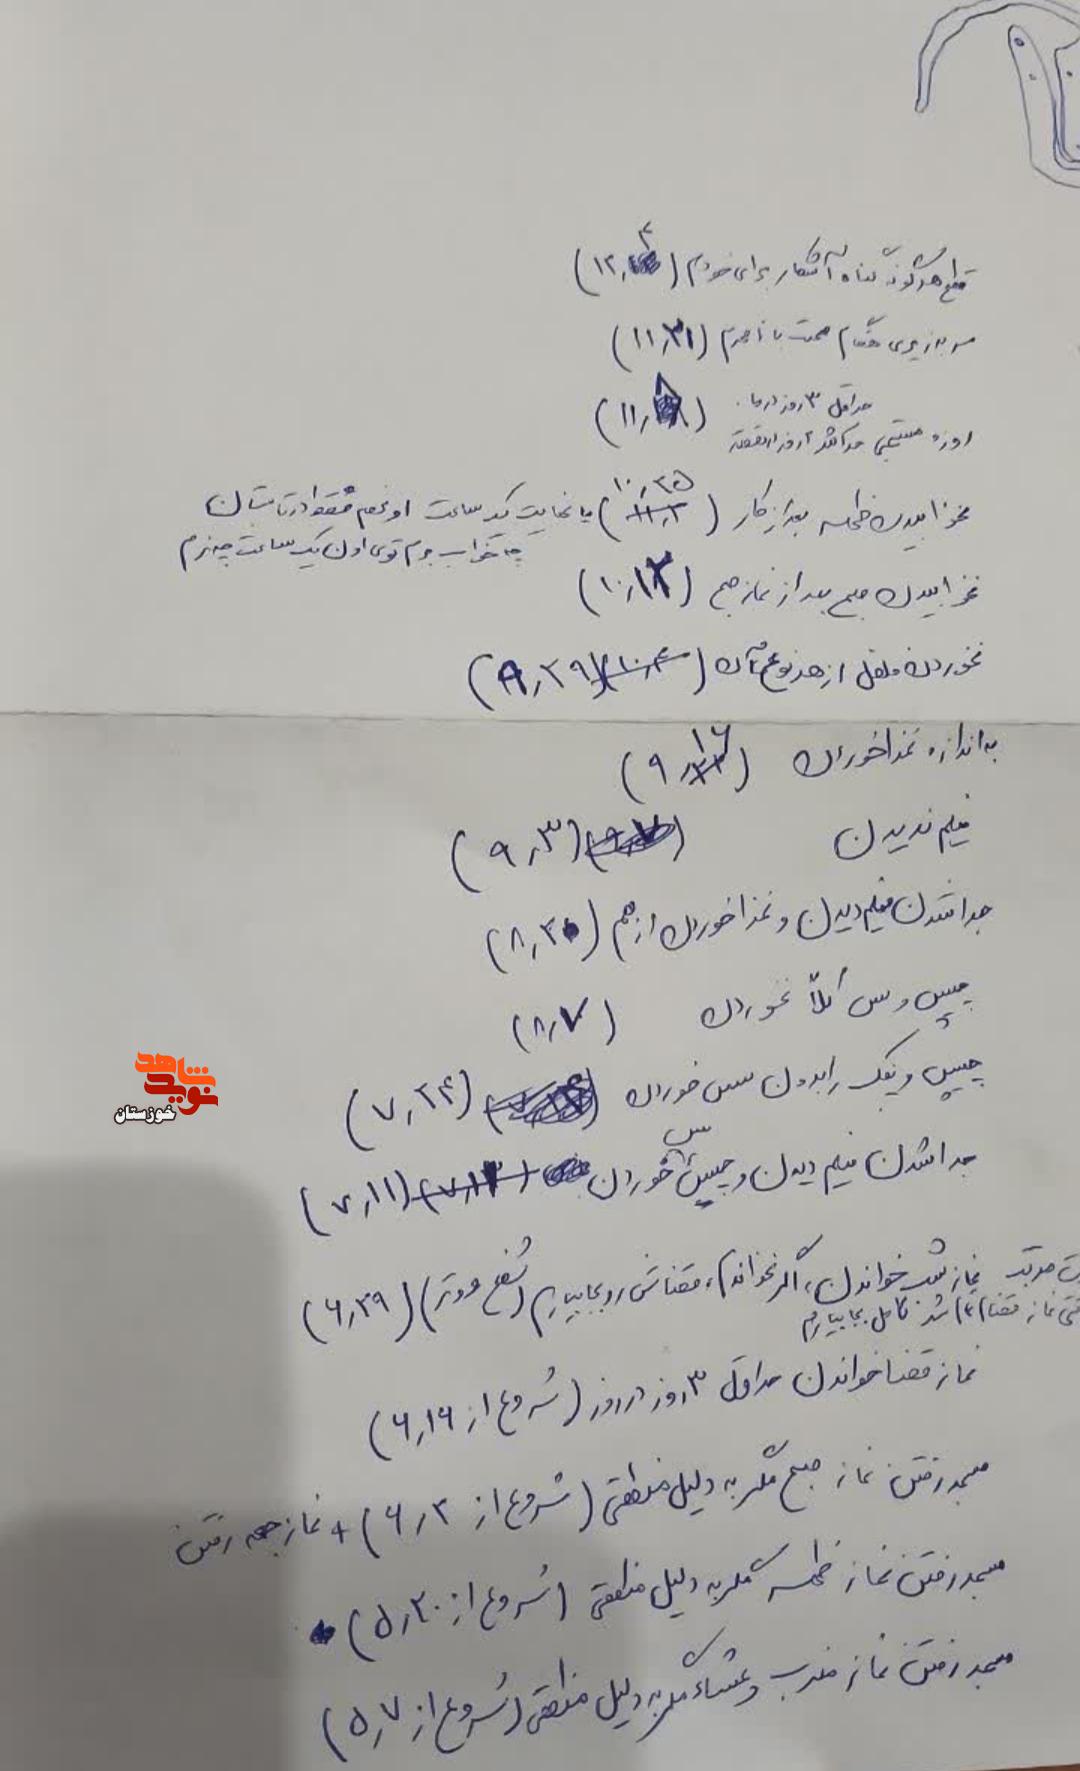 قطع هرگونه گناه آشکار برای خودم (۱۲٫۴)
سر بزیری هنگام صحبت با نامحرم (۱۱٫۳۱)
حداقل ۳ روز در ماه
روزه مستحبی حداکثر ۲ روز در هفته (۱۱٫۸)
نخوابیدن ظهر بعد از کار (۱۰٫۲۵) یا نهایت یک ساعت اونم فقط در تابستان
چه خواب برم توی اون یک ساعت چه نرم
نخوابیدن صبح بعد از نماز صبح (۱۰٫۱۲)
نخوردن فلفل از هر نوع آن (۱۰٫۴) (۹٫۲۹)
به اندازه غذا خوردن (۹٫۱۶)
فیلم ندیدن (۹٫۳)
جدا شدن فیلم دیدن و غذا خوردن از هم (۸٫۲۰)
چیپس و سس کلاً نخوردن (۸٫۷)
چیپس و پفک را بدون سس خوردن (۷٫۲۴)
جدا شدن فیلم دیدن و چیپس سس خوردن (۷٫۱۳) (۷٫۱۱)
نماز شب خواندن، اگر نخواندم، قضاش رو بجا بیارم (شفع و وتر) (۶٫۲۹)
نماز قضا شد کامل بجا بیارم
نماز قضا خواندن حداقل ۳ روز در روز (شروع از ۶٫۱۶)
مسجد رفتن نماز صبح مگر به دلیل منطقی (شروع از ۶٫۲) + نماز جمعه رفتن
مسجد رفتن نماز ظهر مگر به دلیل منطقی (شروع از ۵٫۲۰)
مسجد رفتن نماز مغرب و عشاء مگر به دلیل منطقی (شروع از ۵٫۷)
نوید شاهد
خوزستان